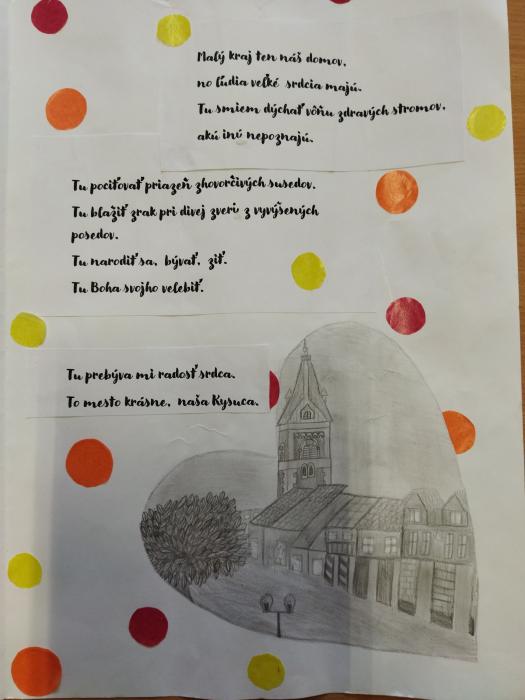 Malý kraj ten náš domov,
no ľudia veľké srdcia majú.
Tu smiem dýchať vôňu zdravých stromov,
akú inú nepoznajú.
Tu pociťovať priazeň zhovorčivých susedov.
Tu blažiť zrak pri divej zveri z vyvýšených
posedov.
Tu narodiť sa, bývať, žiť.
Tu Boha svojho velebiť.
Tu prebýva mi radosť srdca.
To mesto krásne, naša Kysuca.